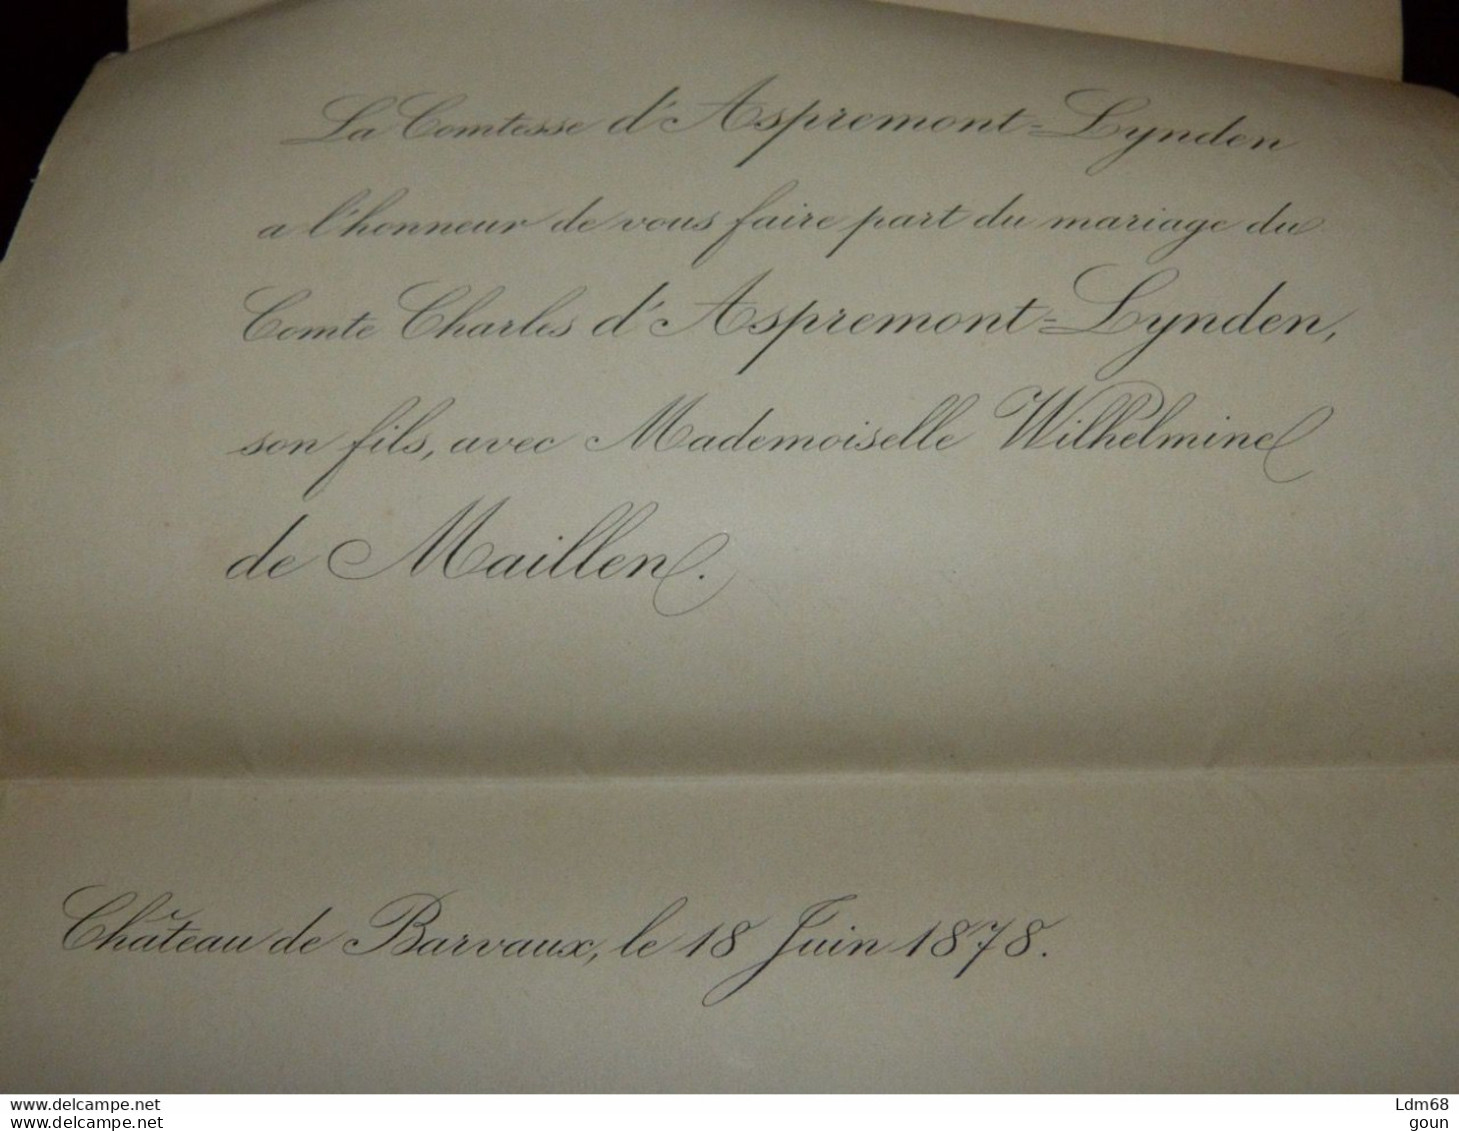 La Comtesse d'Aspremont-Lynden
a l'honneur de vous faire part du mariage du
Comte Charles d'Aspremont-Lynden,
son fils, avec Mademoiselle Wilhelmine
de Maillen.
Château de Barvaux, le 18 Juin 1878.
www.delcampe.net
www.delcampe.net
Ldm68
goun